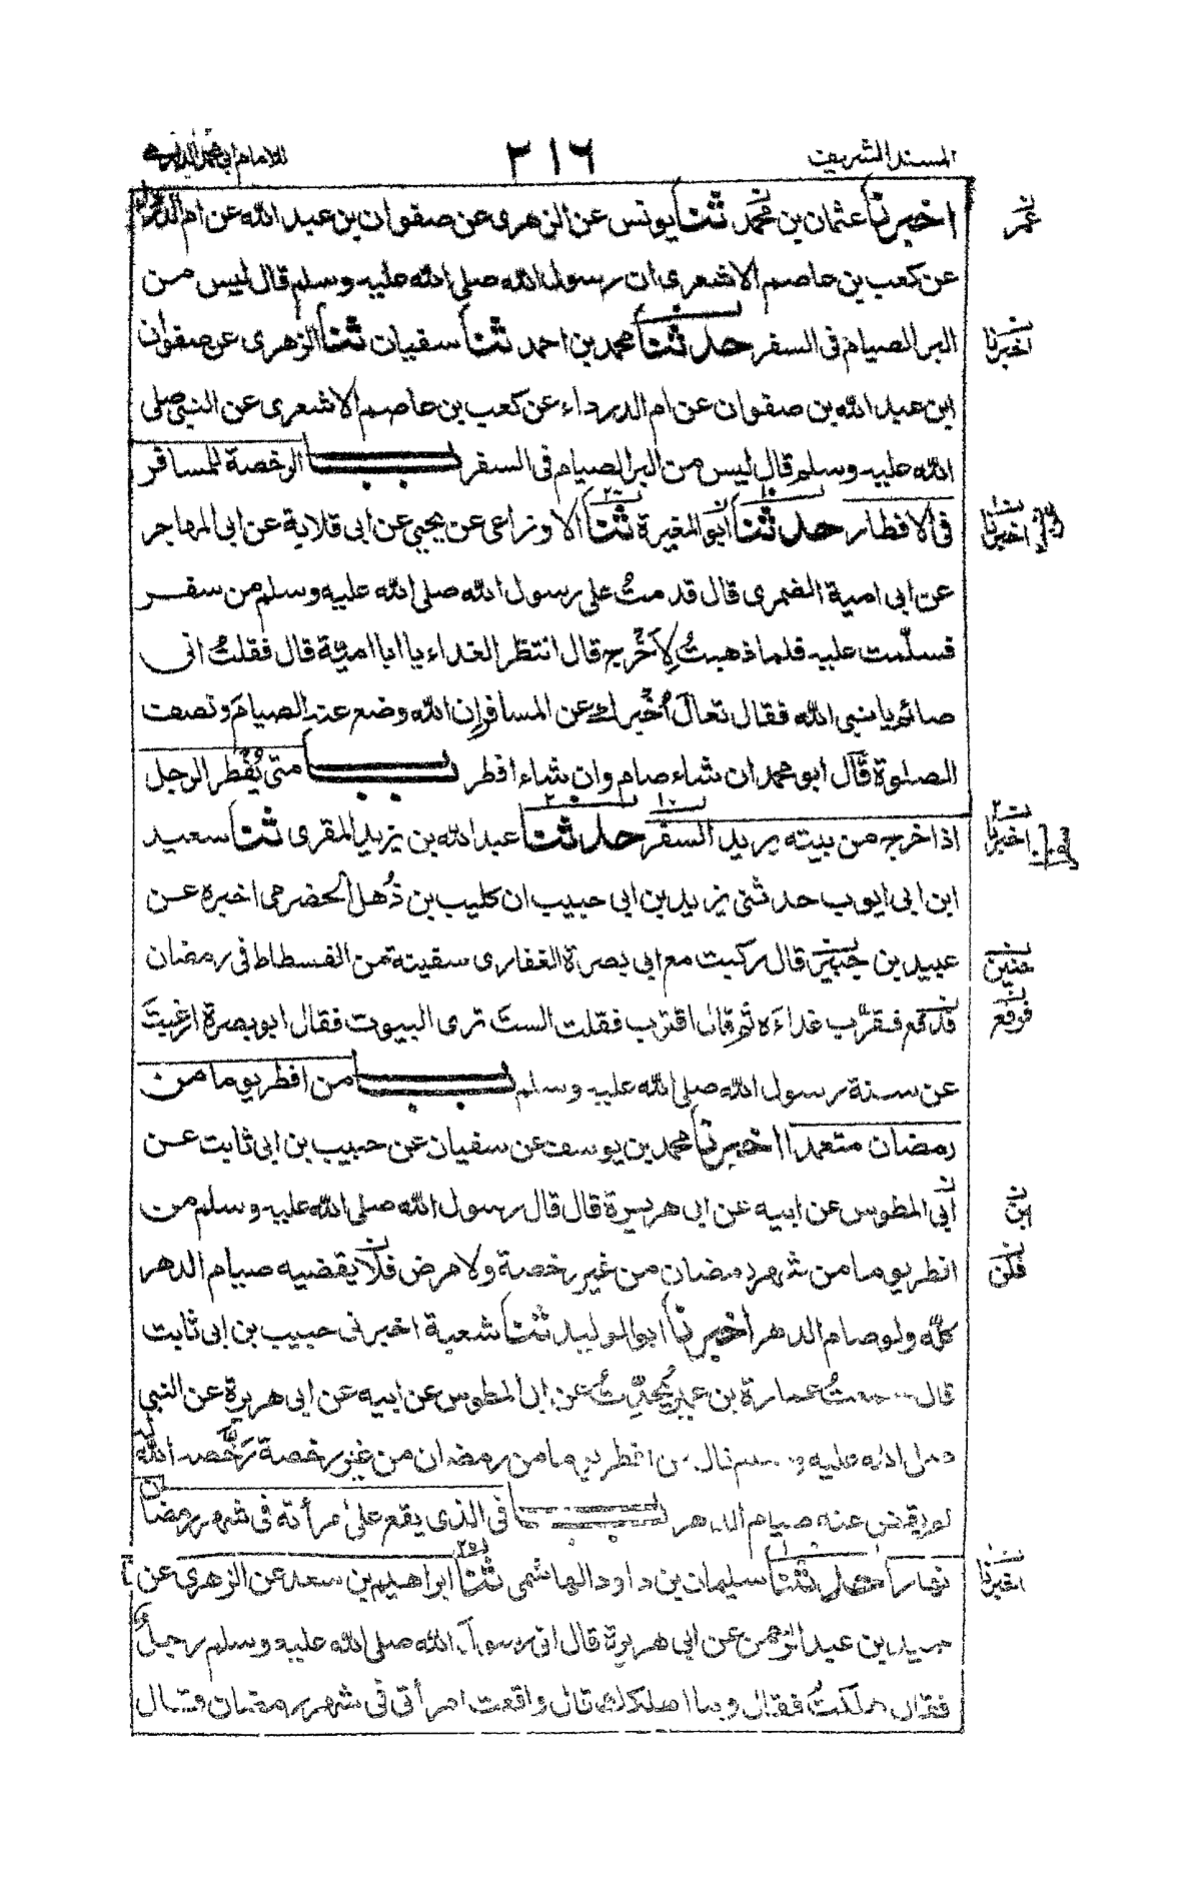 المسند الشريف ٢١٦ للامام ابي محمد الدارمي
اخبرنا عثمان بن محمد ثنا يونس عن الزهرى عن صفوان بن عبد الله عن ام الدرداء
عمر
عن كعب بن عاصم الاشعرى ان رسول الله صلى الله عليه وسلم قال ليس من
البر الصيام فى السفر حدثنا محمد بن احمد ثنا سفيان ثنا الزهرى عن صفوان
اخبرنا
ابن عبد الله بن صفوان عن ام الدرداء عن كعب بن عاصم الاشعرى عن النبى صلى
الله عليه وسلم قال ليس من البر الصيام فى السفر باب الرخصة للمسافر
فى الافطار حدثنا ابو المغيرة ثنا الاوزاعى عن يحيى عن ابى قلابة عن ابى المهاجر
اخبرنا
عن ابى امية الضمرى قال قدمتُ على رسول الله صلى الله عليه وسلم من سفر
فسلّمت عليه فلما ذهبتُ لِاَخْرج قال انتظر الغداء يا ابا امية قال فقلتُ انى
صائم يا نبى الله فقال تعالَ اُخْبرك عن المسافر اِن الله وضع عنه الصيامَ ونصف
الصلوة قال ابو محمد ان شاء صام وان شاء افطر باب متى يُفْطر الرجل
اذا خرج من بيته يريد السفر حدثنا عبد الله بن يزيد المقرى ثنا سعيد
اخبرنا
ابن ابى ايوب حدثنى يزيد بن ابى حبيب ان كليب بن ذُهل الحضرمى اخبره عن
عبيد بن جبير قال ركبت مع ابى بصرة الغفارى سفينة من الفسطاط فى رمضان
حنين
فدفع فقرّب غداءَه ثم قال اقترب فقلت الستَ ترى البيوت فقال ابو بصرة ارغبتَ
فوقع
عن سنة رسول الله صلى الله عليه وسلم باب من افطر يوما من
رمضان متعمدا اخبرنا محمد بن يوسف عن سفيان عن حبيب بن ابى ثابت عن
ابى المطوس عن ابيه عن ابى هريرة قال قال رسول الله صلى الله عليه وسلم من
ابن
افطر يوما من شهر رمضان من غير رخصة ولا مرض فلا يقضيه صيام الدهر
فلن
كلّه ولو صام الدهر اخبرنا ابو الوليد ثنا شعبة اخبرنى حبيب بن ابى ثابت
قال سمعتُ عمارة بن عمير يُحدّث عن ابى المطوس عن ابيه عن ابى هريرة عن النبى
صلى الله عليه وسلم قال من افطر يوما من رمضان من غير رخصة رَخّصه الله له
لم يقض عنه صيام الدهر باب فى الذى يقع على امرأته فى شهر رمضان
نهارا حدثنا سليمان بن داود الهاشمى ثنا ابراهيم بن سعد عن الزهرى عن
اخبرنا
حميد بن عبد الرحمن عن ابى هريرة قال اتى رسول الله صلى الله عليه وسلم رجلٌ
فقال هلكتُ فقال وما اهلكك قال واقعت امرأتى فى شهر رمضان فقال